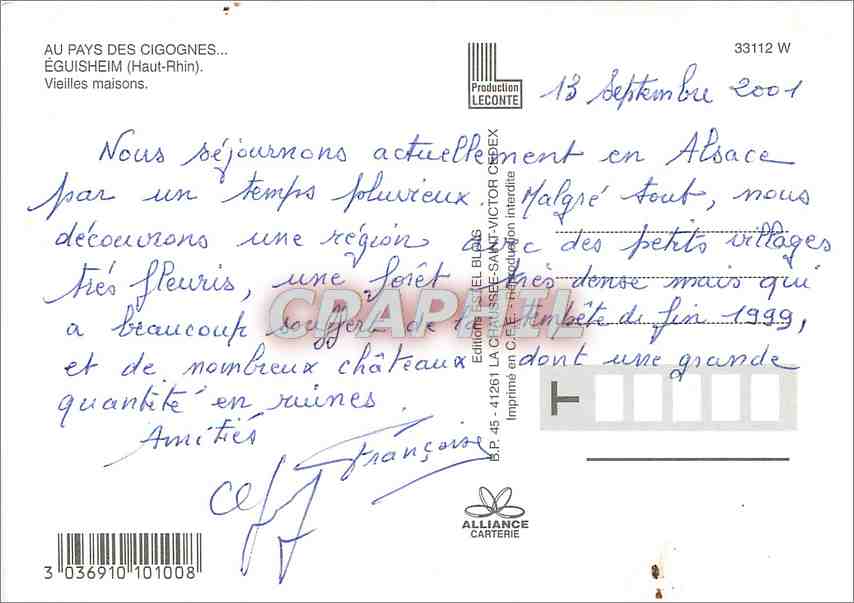 AU PAYS DES CIGOGNES...
ÉGUISHEIM (Haut-Rhin).
Vieilles maisons.
Production
LECONTE
33112 W
13 Septembre 2001
Nous séjournons actuellement en Alsace
par un temps pluvieux. Malgré tout, nous
découvrons une région avec des petits villages
trés fleuris, une forêt très dense mais qui
a beaucoup souffert de la tempête de fin 1999,
et de nombreux châteaux dont une grande
quantité en ruines.
Amitiés
Françoise
Editions ESTEL BLOIS
B.P. 45 - 41261 LA CHAUSSEE-SAINT-VICTOR CEDEX
Imprimé en C.E.E. - Reproduction interdite
CPAPHIL
T
ALLIANCE
CARTERIE
3 036910 101008